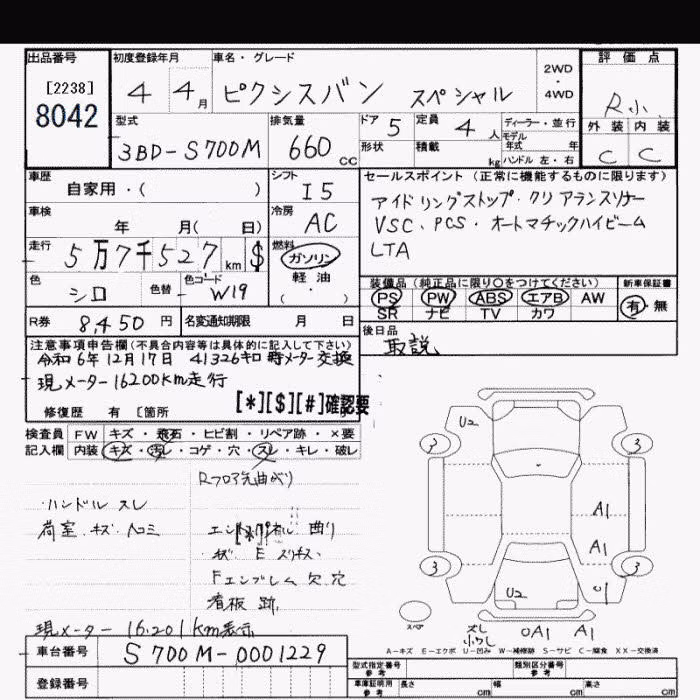 出品番号 初度登録年月 車名・グレード 評価点
[2238]
8042
4 4月 ピクシスバン スペシャル
2WD
・
4WD
R小
型式 排気量 ドア 定員 ディーラー・並行
3BD-S700M 660 cc 5 4人
モデル年式 年
形状 積載 kg ハンドル 左・右
外装 内装
C C
車歴 シフト セールスポイント(正常に機能するものに限ります)
自家用・( ) I5
アイドリングストップ・クリアランスソナー
VSC、PCS・オートマチックハイビーム
LTA
車検 冷房
年 月( 日) AC
走行 燃料
5万7千527km $ ガソリン
軽油
・
( )
色 色替 色コード
シロ W19
装備品(純正品に限り○をつけてください) 新車保証書
PS PW ABS エアB AW 有・無
SR ナビ TV カワ
R券 8,450円 名変通知期限 月 日
後日品
取説
注意事項申告欄(不具合内容等は具体的に記入して下さい)
令和6年12月17日 41326キロ時メーター交換
現メーター16200km走行
[*][$][#]確認要
修復歴 有 [箇所
検査員 FW キズ・飛石・ヒビ割・リペア跡・×要
記入欄 内装 キズ・汚レ・コゲ・穴・スレ・キレ・破レ
Rフロア先曲がり
ハンドル スレ
荷室 キズ ヘコミ
[*]
曲り
Fエンブレム欠 穴
看板跡
現メーター 16,201km表示
U2
3 3
A1
A1
3 3
U2
スペア
A1 A1
A-キズ E-エクボ U-凹み W-補修跡 S-サビ C-腐食 XX-交換済
車台番号 S700M-0001229
型式指定番号 参考 類別区分番号 参考
登録番号
車庫証明用 参考 長さ cm 幅 cm 高さ cm